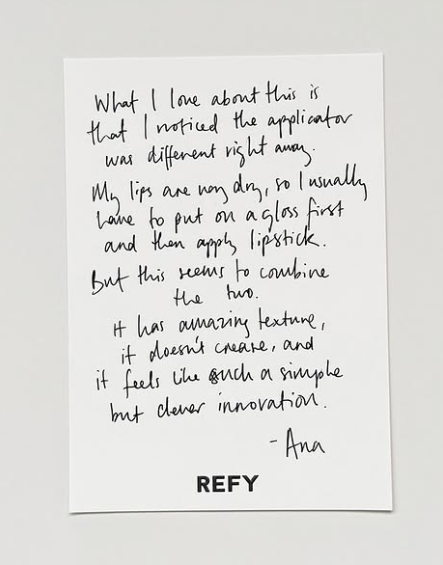 What I love about this is
that I noticed the applicator
was different right away.
My lips are very dry, so I usually
have to put on a gloss first
and then apply lipstick.
But this seems to combine
the two.
It has amazing texture,
it doesn't crease, and
it feels like such a simple
but clever innovation.
- Ana
REFY